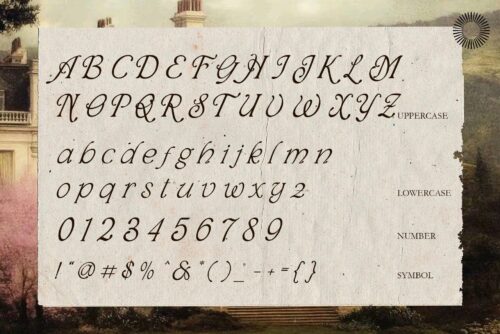 A B C D E F G H I J K L M
N O P Q R S T U V W X Y Z UPPERCASE
a b c d e f g h i j k l m n
o p q r s t u v w x y z LOWERCASE
0 1 2 3 4 5 6 7 8 9 NUMBER
! " @ # $ % ^ & * ( ) _ - + = { } SYMBOL